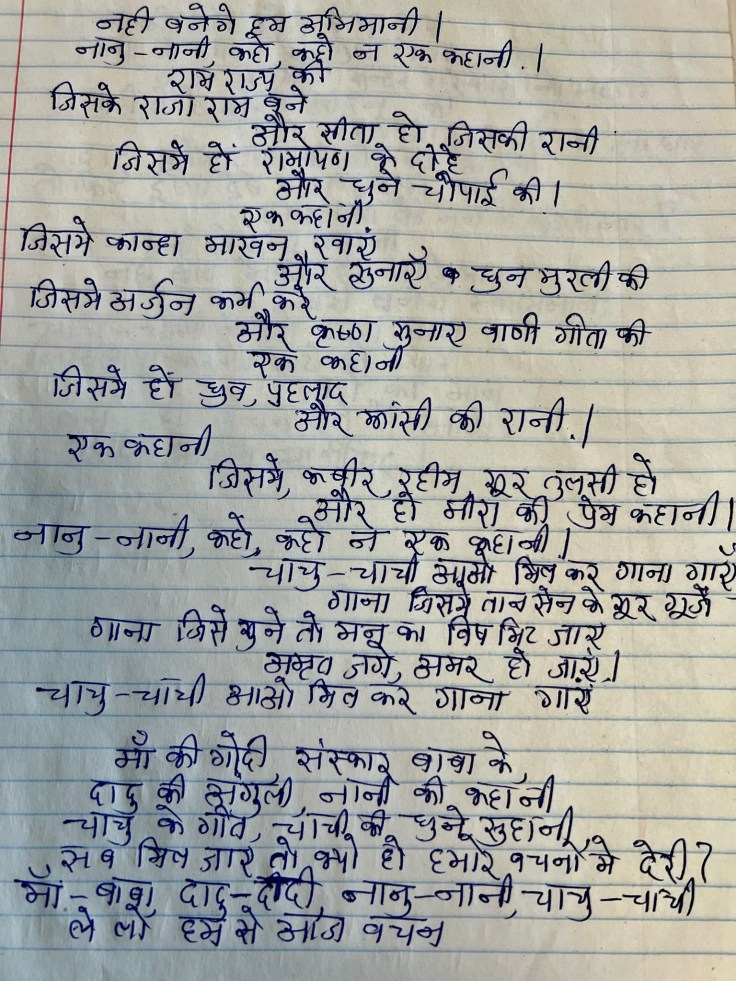 नही बनेगे हम अभिमानी |
नानु-नानी, कहो, कहो न एक कहानी. |
राम राज्य की
जिसके राजा राम बने
और सीता हो जिसकी रानी
जिसमे हों रामायण के दोहे
और धुन चौपाई की |
एक कहानी
जिसमे कान्हा माखन खाएं
और सुनाएँ धुन मुरली की
जिसमे अर्जुन कर्म करे
और कृष्ण सुनाए वाणी गीता की
एक कहानी
जिसमे हों ध्रुव, प्रहलाद
और झांसी की रानी. |
एक कहानी
जिसमे, कबीर, रहीम, सूर तुलसी हो
और हो मीरा की प्रेम कहानी |
नानु-नानी, कहो, कहो न एक कहानी |
चाचु-चाची आओ मिल कर गाना गाएँ
गाना जिसमे तानसेन के सूर गूजें
गाना जिसे सुने तो मन का विष मिट जाए
अमृत जगे, अमर हो जाएं |
चाचु-चाची आओ मिल कर गाना गाएं
माँ की गोदी, संस्कार बाबा के,
दादु की अंगुली, नानी की कहानी
चाचु के गीत, चाची की धुने सुहानी,
सब मिल जाए तो क्यो हो हमारे वचनों मे देरी?
माँ-बाबा, दादु-दादी, नानु-नानी, चाचु-चाची
ले लो हम से आज वचन